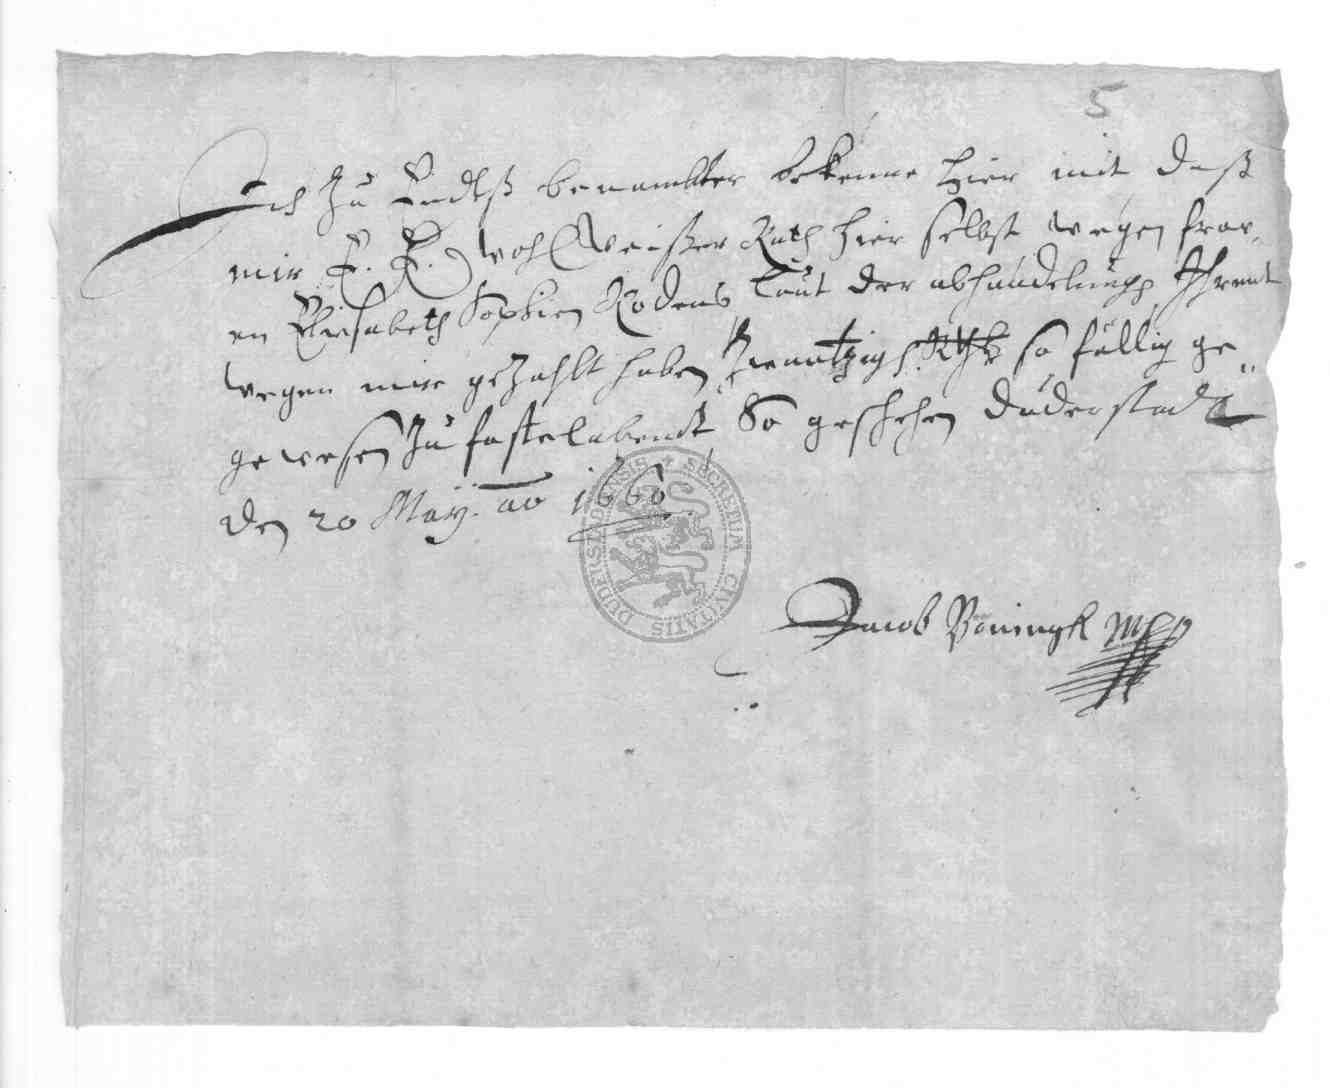 5
Ich Zu Endtß benambter bekenne hier mit daß
mir E. E. wohl Weißer Rath hier selbst wegen fraw-
en Elisabeth Sophien Rodens Laut der abhandelungh
wegen mir gezahlt haben Zwantzig Rthlr so fällig ge-
gewesen Zu fastelabendt So geschehen Duderstadt
den 20 May. ao 1660
SECRETUM CIVITATIS DUDERSTADENSIS
Jacob Böningk mp